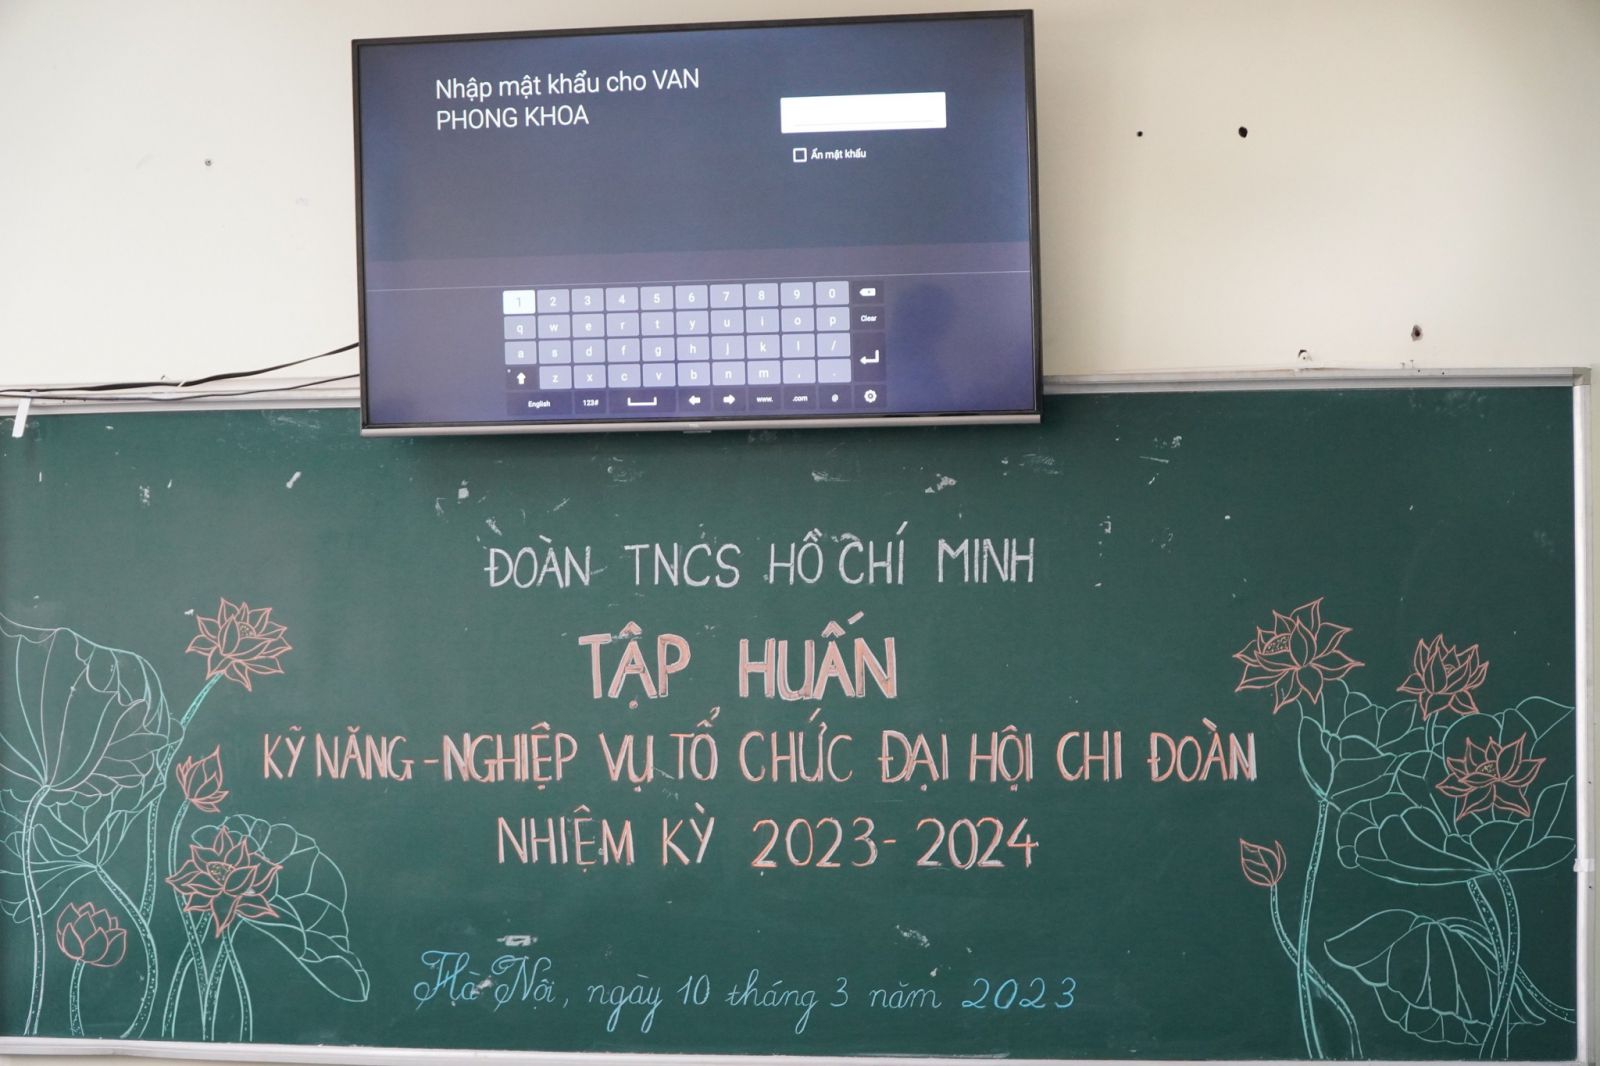 Nhập mật khẩu cho VAN
PHONG KHOA
Ẩn mật khẩu
1 2 3 4 5 6 7 8 9 0
q w e r t y u i o p Clear
a s d f g h j k l /
z x c v b n m , .
English 123# www. .com @
ĐOÀN TNCS HỒ CHÍ MINH
TẬP HUẤN
KỸ NĂNG - NGHIỆP VỤ TỔ CHỨC ĐẠI HỘI CHI ĐOÀN
NHIỆM KỲ 2023 - 2024
Hà Nội, ngày 10 tháng 3 năm 2023